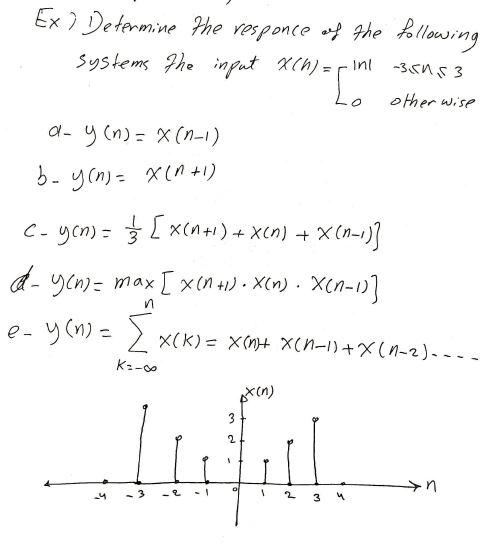 Ex) Determine the responce of the following
systems the input x(n) = { |n| -3≤n≤3
0 otherwise
a- y(n) = x(n-1)
b- y(n) = x(n+1)
c- y(n) = 1/3 [x(n+1) + x(n) + x(n-1)]
d- y(n) = max [x(n+1) . x(n) . x(n-1)]
e- y(n) = n ∑ k=-∞ x(k) = x(n)+ x(n-1)+x(n-2)-----
x(n)
3
2
1
-4 -3 -2 -1 0 1 2 3 4 n